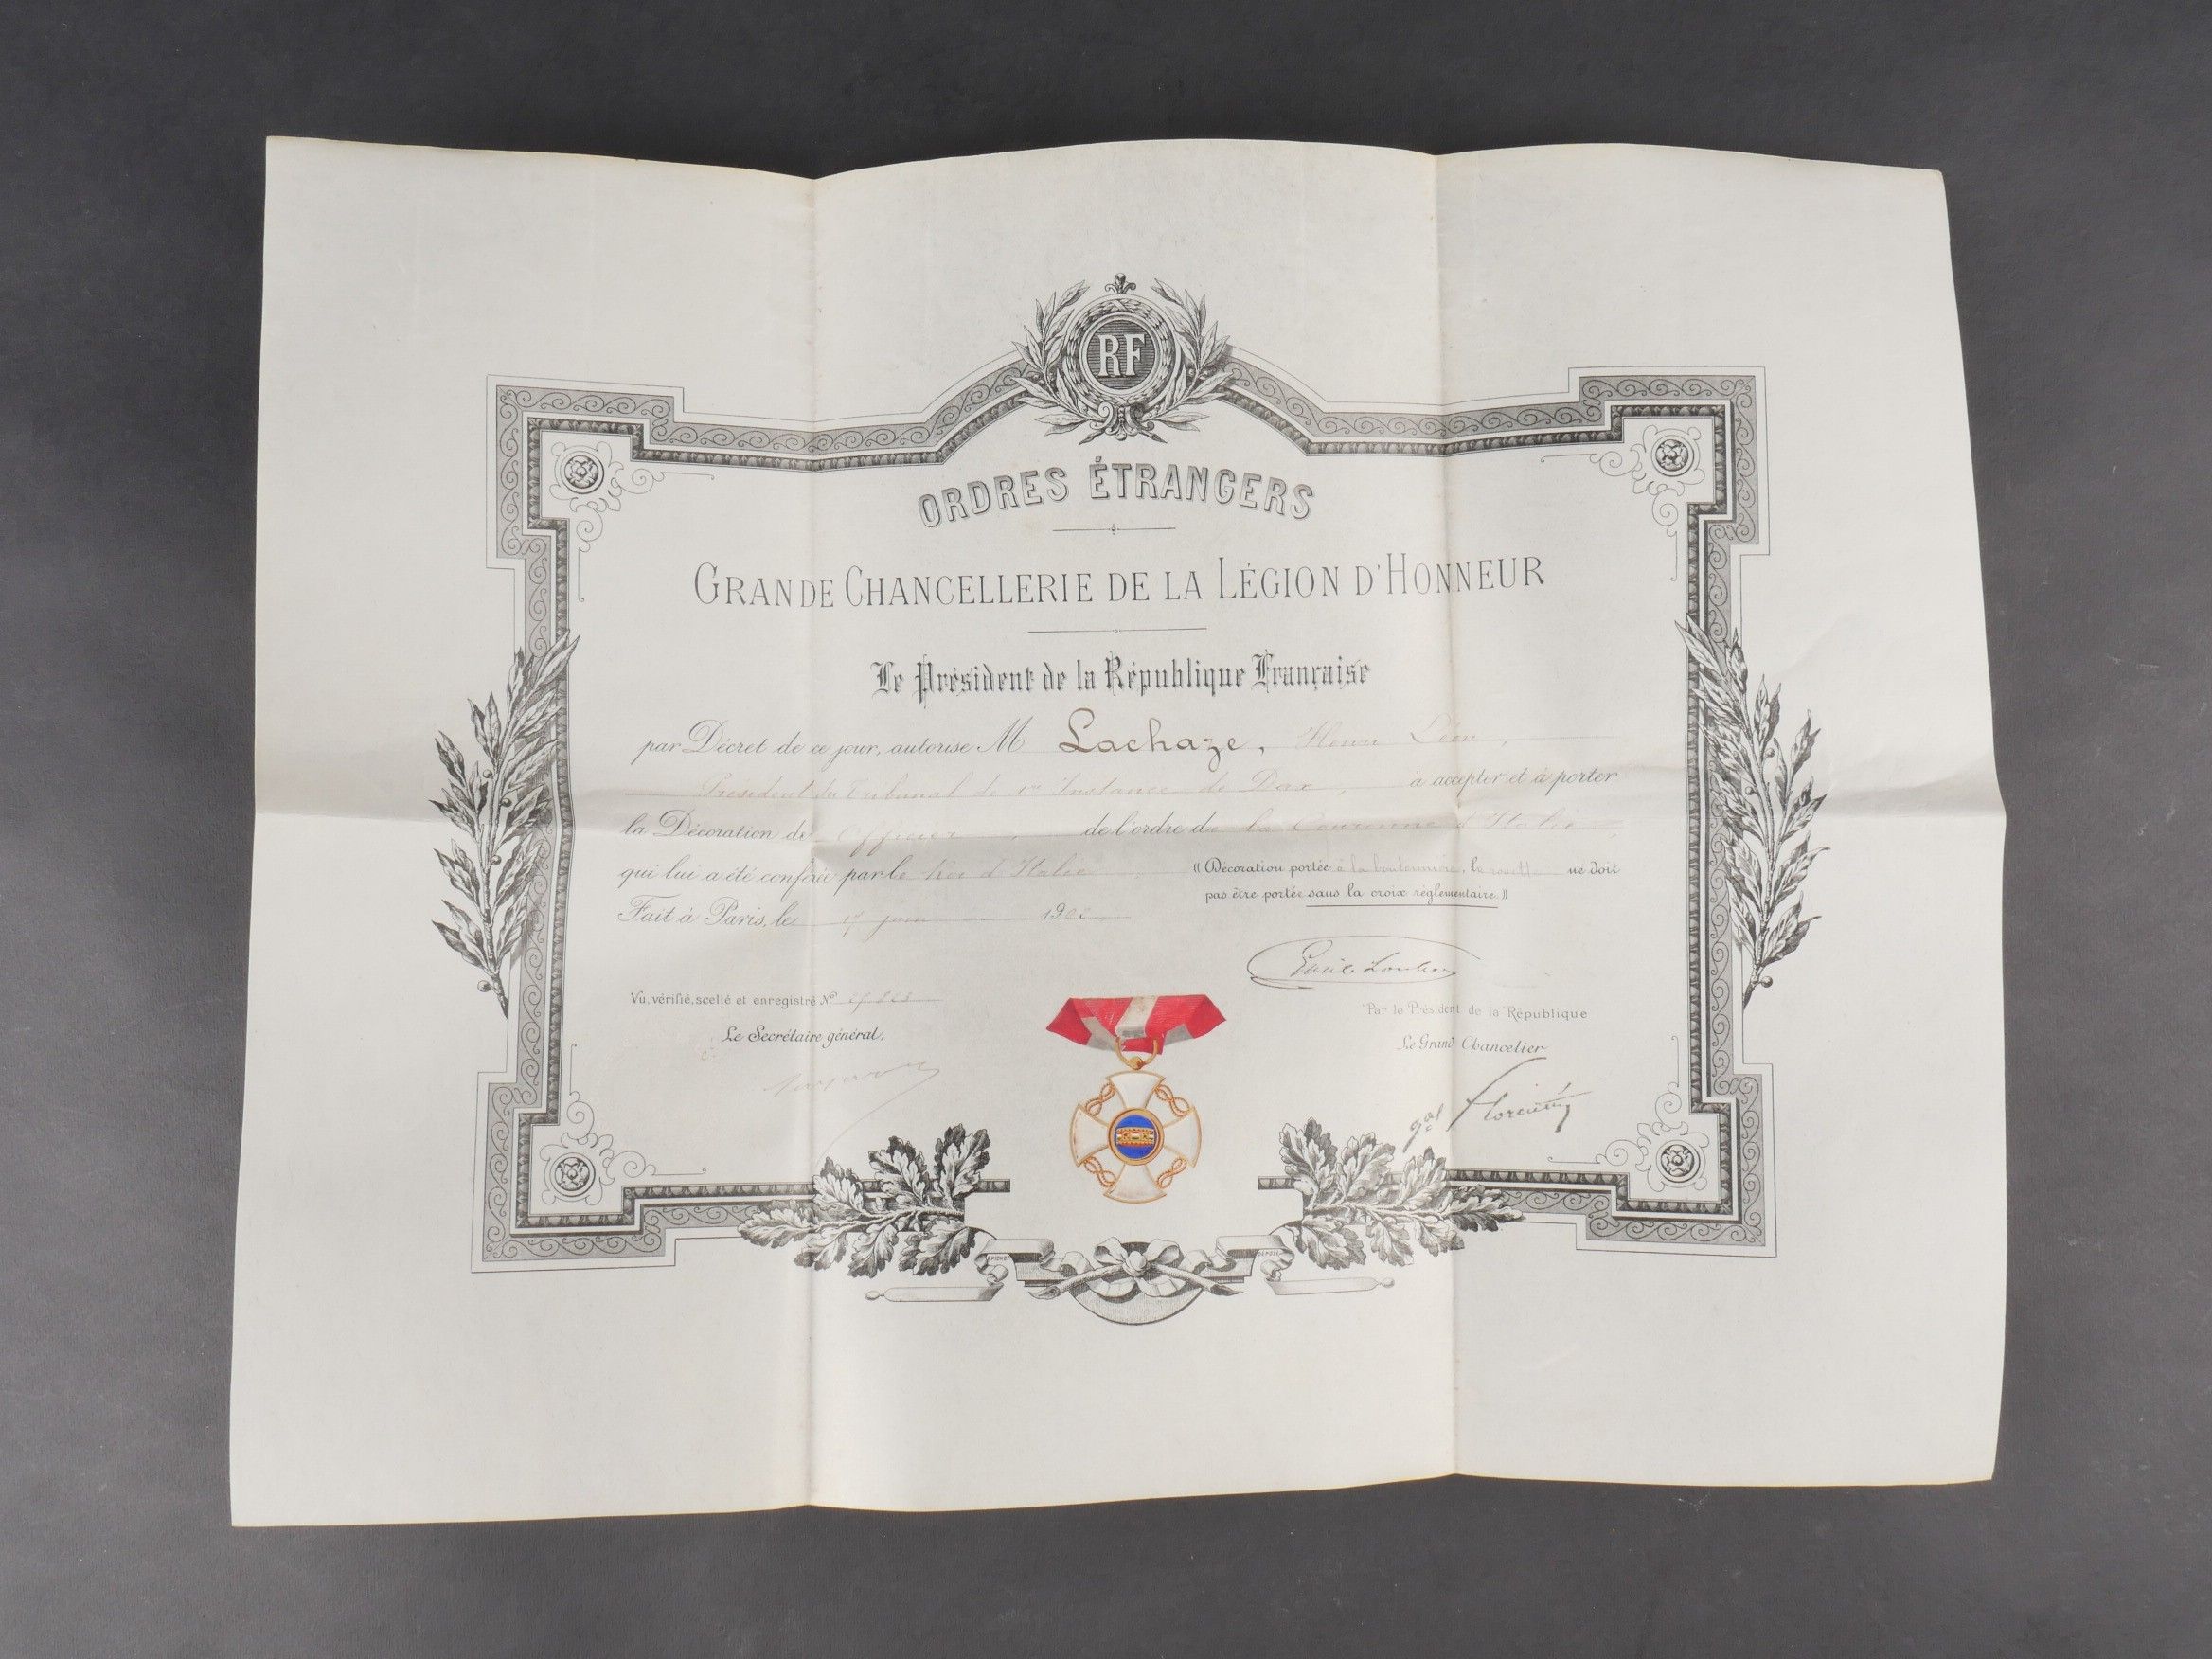 RF
ORDRES ÉTRANGERS
GRANDE CHANCELLERIE DE LA LÉGION D'HONNEUR
Le Président de la République Française
par Décret de ce jour, autorise M Lachaze, Henri Léon,
Président du Tribunal de 1re Instance de Dax, à accepter et à porter
la Décoration de Officier, de l'ordre de la Couronne d'Italie,
qui lui a été conférée par le Roi d'Italie.
(( Décoration portée à la boutonnière, la rosette ne doit
pas être portée sans la croix réglementaire ))
Fait à Paris, le 17 juin
Emile Loubet
Vu, vérifié, scellé et enregistré No
Par le Président de la République
Le Secrétaire général,
Le Grand Chancelier
gal Florentin